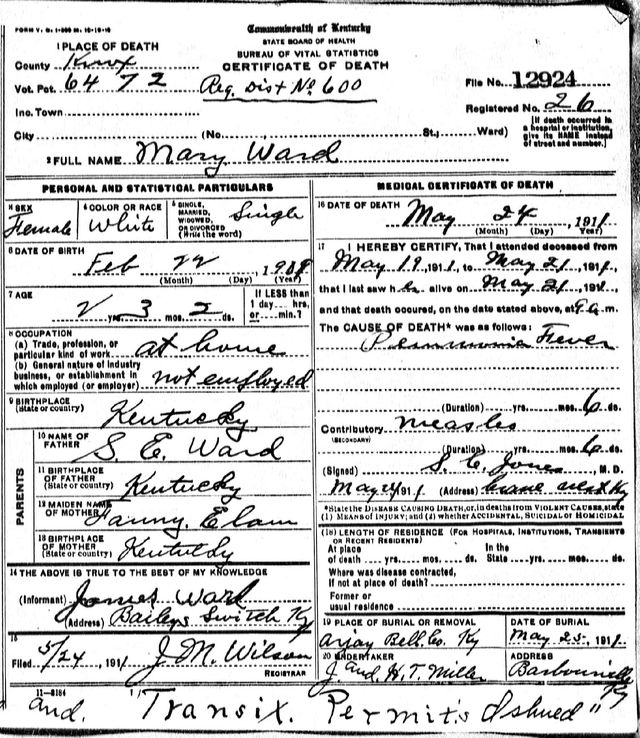 FORM V. S. 1-500 M. 10-19-10
Commonwealth of Kentucky
STATE BOARD OF HEALTH
BUREAU OF VITAL STATISTICS
CERTIFICATE OF DEATH
1 PLACE OF DEATH
County Knox
Vot. Pot. 6472
Reg. Dist No 600
File No. 12924
Inc. Town
Registered No. 26
City (No. St.; Ward)
[If death occurred in a hospital or institution, give its NAME instead of street and number.]
2 FULL NAME Mary Ward
PERSONAL AND STATISTICAL PARTICULARS
3 SEX Female
4 COLOR OR RACE White
5 SINGLE, MARRIED, WIDOWED OR DIVORCED (Write the word) Single
6 DATE OF BIRTH
Feb 22, 1909
(Month) (Day) (Year)
7 AGE
2 yrs. 3 mos. 2 ds.
If LESS than 1 day.... hrs. or.... min.?
8 OCCUPATION
(a) Trade, profession, or particular kind of work at home
(b) General nature of industry business, or establishment in which employed (or employer) not employed
9 BIRTHPLACE (State or country) Kentucky
PARENTS
10 NAME OF FATHER S. E. Ward
11 BIRTHPLACE OF FATHER (State or country) Kentucky
12 MAIDEN NAME OF MOTHER Fanny. Elam
13 BIRTHPLACE OF MOTHER (State or country) Kentucky
14 THE ABOVE IS TRUE TO THE BEST OF MY KNOWLEDGE
(Informant) James Ward
(Address) Baileys Switch Ky
15
Filed 5/24, 1911 J. M. Wilson
REGISTRAR
11-3184
MEDICAL CERTIFICATE OF DEATH
16 DATE OF DEATH
May 24, 1911
(Month) (Day) (Year)
17 I HEREBY CERTIFY, That I attended deceased from
May 19, 1911, to May 21, 1911,
that I last saw her alive on May 21, 1911,
and that death occured, on the date stated above, at 9 a.m.
The CAUSE OF DEATH* was as follows:
Pneumonia Fever
(Duration) yrs. mos. 6 ds.
Contributory Measles
(SECONDARY)
(Duration) yrs. mos. 6 ds.
(Signed) S. C. Jones, M. D.
May 24 1911 (Address) Ky
*State the DISEASE CAUSING DEATH, or, in deaths from VIOLENT CAUSES, state
(1) MEANS OF INJURY; and (2) whether ACCIDENTAL, SUICIDAL or HOMICIDAL
(18) LENGTH OF RESIDENCE (FOR HOSPITALS, INSTITUTIONS, TRANSIENTS OR RECENT RESIDENTS)
At place of death yrs. mos. ds. In the State yrs. mos. ds.
Where was disease contracted, If not at place of death?
Former or usual residence
19 PLACE OF BURIAL OR REMOVAL
Arjay Bell Co. Ky
DATE OF BURIAL
May 25, 1911
20 UNDERTAKER
J. and H. T. Miller
ADDRESS
Barbourville Ky
and. Transix. Permits Ishued "